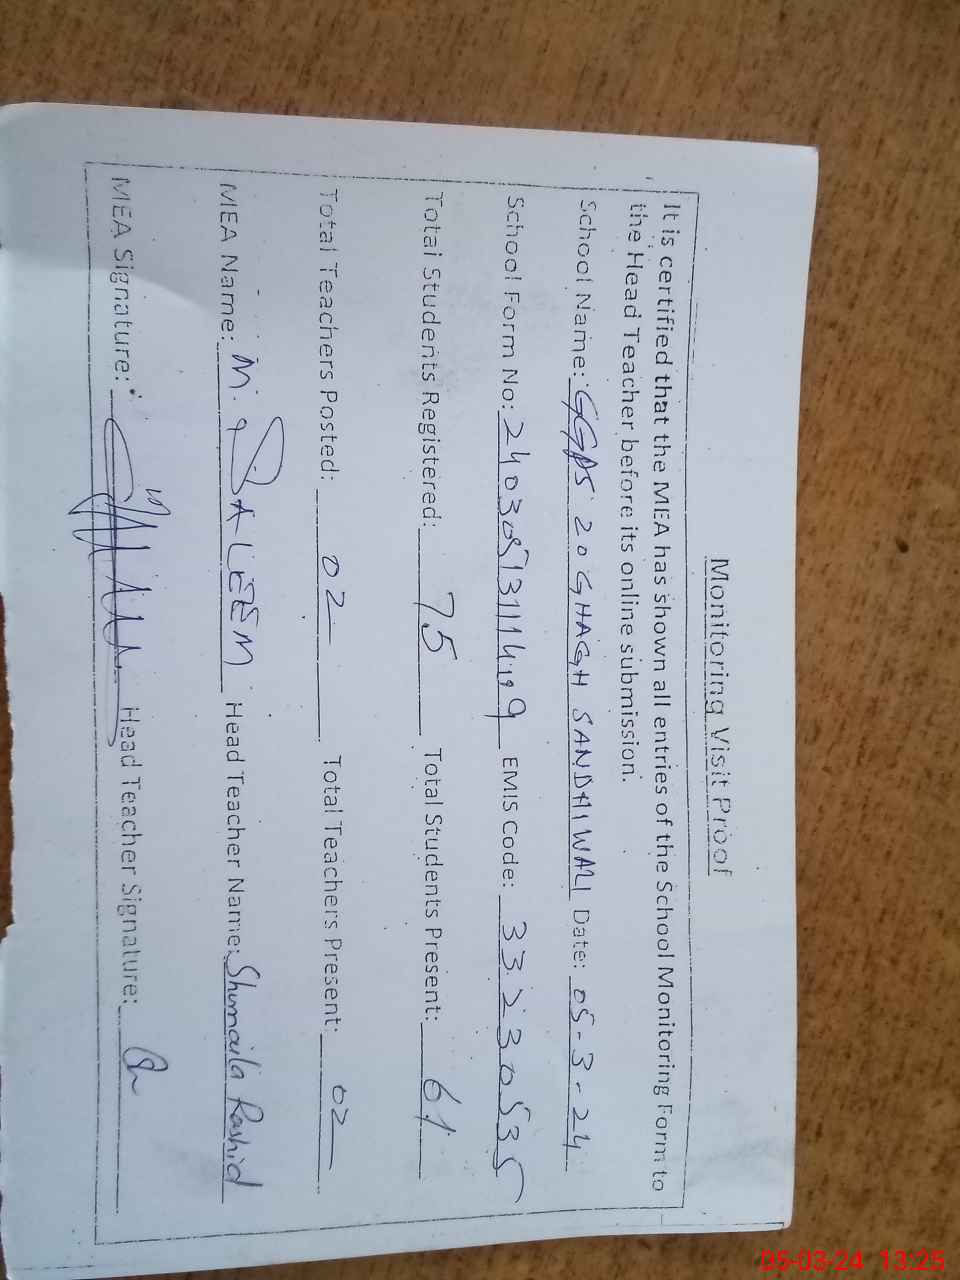 Monitoring Visit Proof
It is certified that the MEA has shown all entries of the School Monitoring Form to
the Head Teacher before its online submission.
School Name: GGPS 20 GHAGH SANDHIWALI Date: 05-3-24
School Form No: EMIS Code: 33230535
Total Students Registered: 75 Total Students Present: 61
Total Teachers Posted: 02 Total Teachers Present: 02
MEA Name: M. SALEEM Head Teacher Name: Shumaila Rashid
MEA Signature: Head Teacher Signature:
05-03-24 13:25